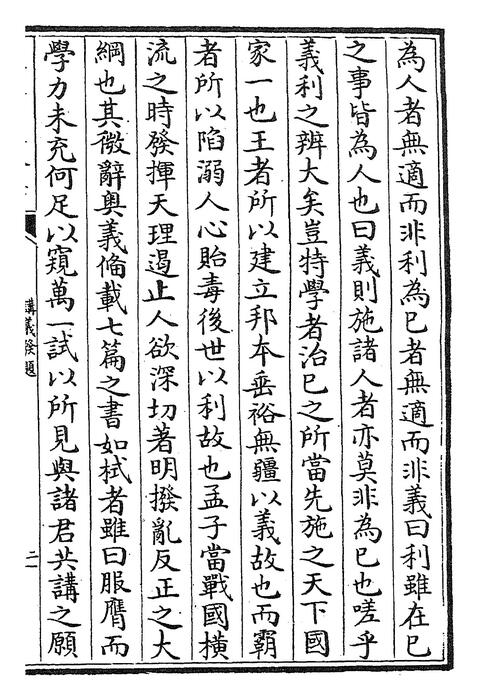 為人者無適而非利為己者無適而非義曰利雖在己
之事皆為人也曰義則施諸人者亦莫非為己也嗟乎
義利之辨大矣豈特學者治己之所當先施之天下國
家一也王者所以建立邦本垂裕無疆以義故也而霸
者所以陷溺人心貽毒後世以利故也孟子當戰國橫
流之時發揮天理遏止人欲深切著明撥亂反正之大
綱也其微辭奧義備載七篇之書如栻者雖曰服膺而
學力未充何足以窺萬一試以所見與諸君共講之願
講義發題
二